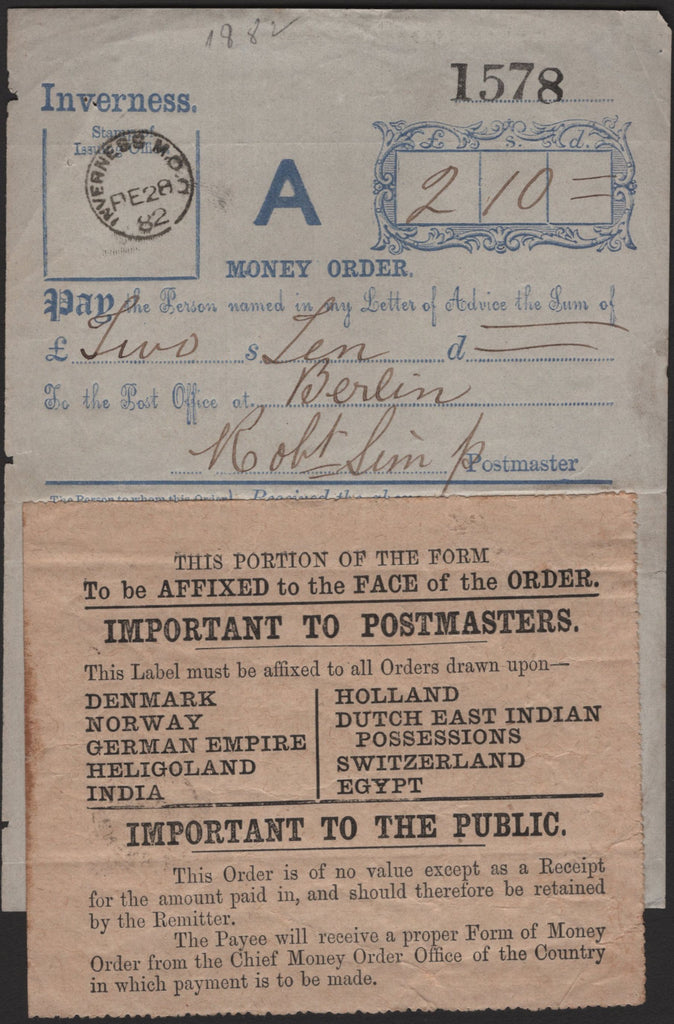 1882
1578
Inverness.
Stamp of
Issuing Office
INVERNESS M.O.O
DE 28
82
A
£ s. d.
2 10 =
MONEY ORDER.
Pay the Person named in my Letter of Advice the Sum of
£ Two s Ten d
To the Post Office at Berlin
Robt Simp Postmaster
The Person to whom this Order Received the above
THIS PORTION OF THE FORM
To be AFFIXED to the FACE of the ORDER.
IMPORTANT TO POSTMASTERS.
This Label must be affixed to all Orders drawn upon—
DENMARK
NORWAY
GERMAN EMPIRE
HELIGOLAND
INDIA
HOLLAND
DUTCH EAST INDIAN
POSSESSIONS
SWITZERLAND
EGYPT
IMPORTANT TO THE PUBLIC.
This Order is of no value except as a Receipt
for the amount paid in, and should therefore be retained
by the Remitter.
The Payee will receive a proper Form of Money
Order from the Chief Money Order Office of the Country
in which payment is to be made.